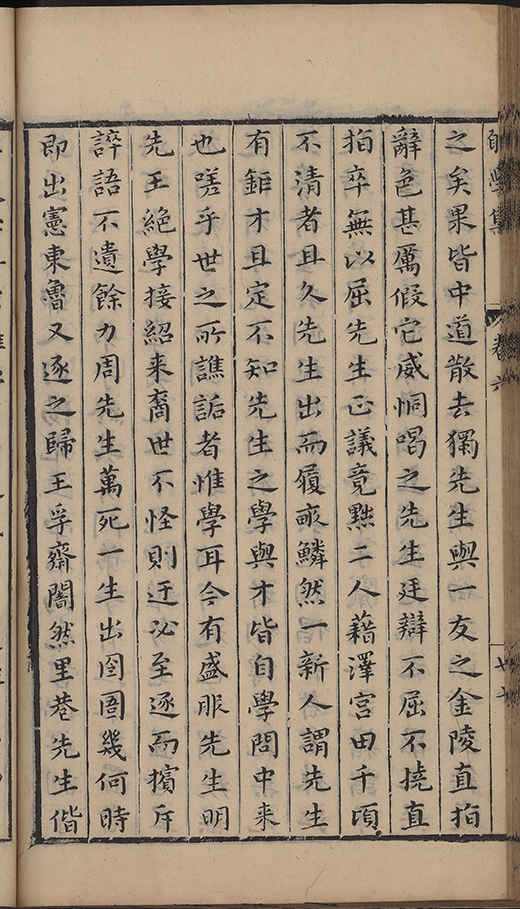 學集 卷六
之矣果皆中道散去獨先生與一友之金陵直指
辭色甚厲假它威恫喝之先生廷辯不屈不撓直
指卒無以屈先生正議竟黜二人藉澤宮田千頃
不清者且久先生出而履畝鱗然一新人謂先生
有鉅才且定不知先生之學與才皆自學問中来
也嗟乎世之所譙詬者惟學耳今有盛服先生明
先王絶學接紹来裔世不怪則迂必至逐而擯斥
誶語不遺餘力周先生萬死一生出囹圄幾何時
即出憲東魯又逐之歸王孚齋闇然里巷先生偕